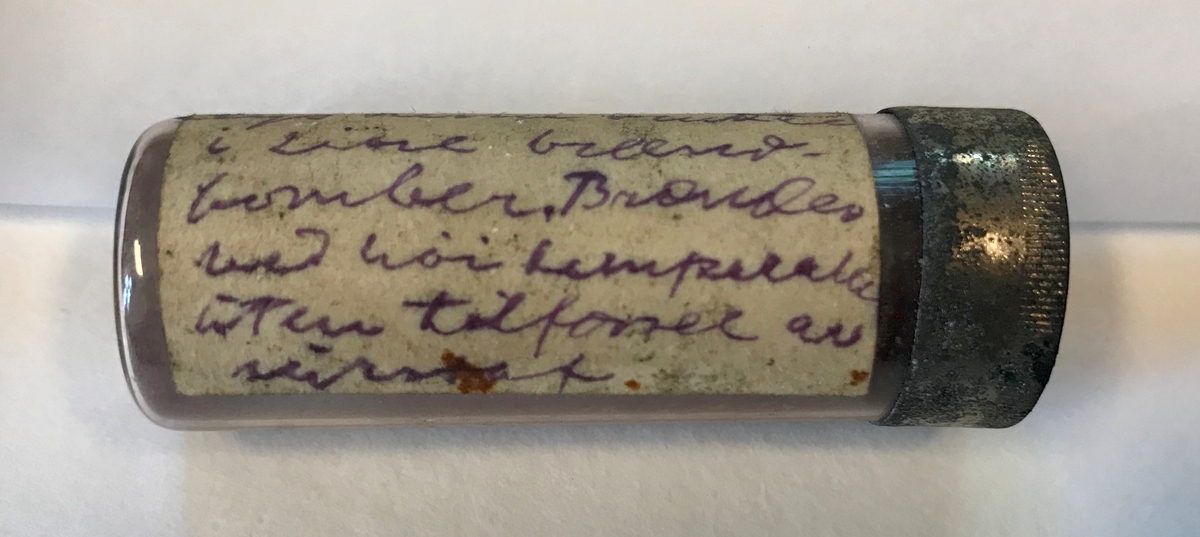 i sine brand-
bomber. Brænder
ved høi temperatur
uten tilførsel av
surstof